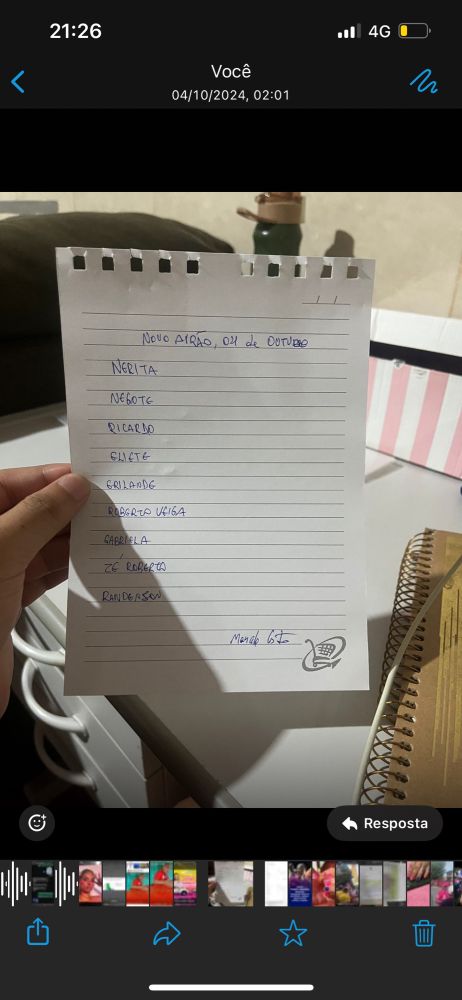 21:26
4G
Você
04/10/2024, 02:01
NOVO AIRÃO, 04 de OUTUBRO
NERITA
NEGOTE
RICARDO
ELIETE
ERILANDE
ROBERTO VEIGA
GABRIELA
ZÉ ROBERTO
RANDERSON
Resposta